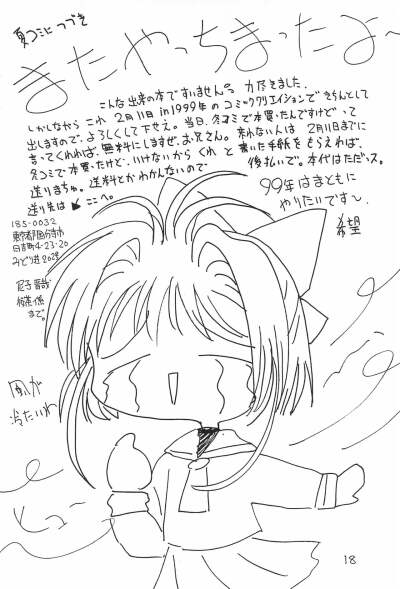 夏コミにつづき
またやっちまったよ〜
こんな出来の本ですいません。力尽きました。
しかしながらこれ 2月11日 in1999年のコミッククリエイションできちんとして
出しますので、よろしくして下せえ。当日、冬コミで本買ったんですけどって
言ってくれれば、無料にしますぜ、お兄さん。来れない人は 2月11日までに
冬コミで本買ったけど、いけないからくれと書いた手紙をもらえれば、
送りまちゅ。送料とかわかんないので 後払いで。本代はただっス。
送り先は ここへ。
99年はまともに
やりたいです〜
希望
185-0032
まで。
風が
冷たいわ
ヒュー
18